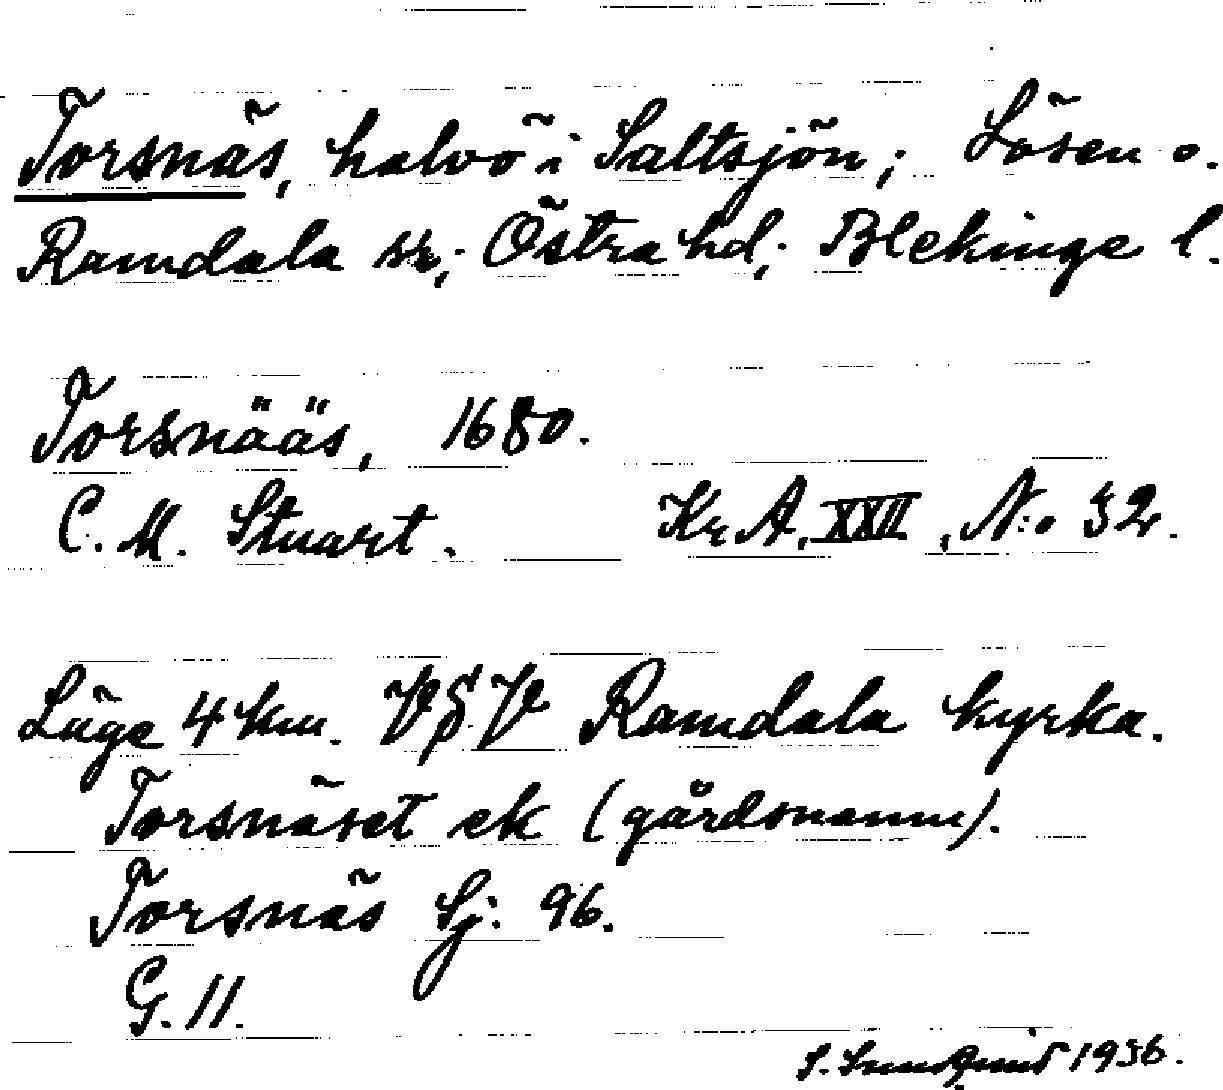 Torsnäs, halvö i Saltsjön; Lösen o.
Ramdala sr; Östra hd; Blekinge l.
Torsnääs, 1680.
C. M. Stuart. Kr A, XXII, N:o 32.
Läge 4 km. VSV Ramdala kyrka.
Torsnäset ek (gårdsnamn).
Torsnäs Sj: 96.
G. 11.
S. 1936.